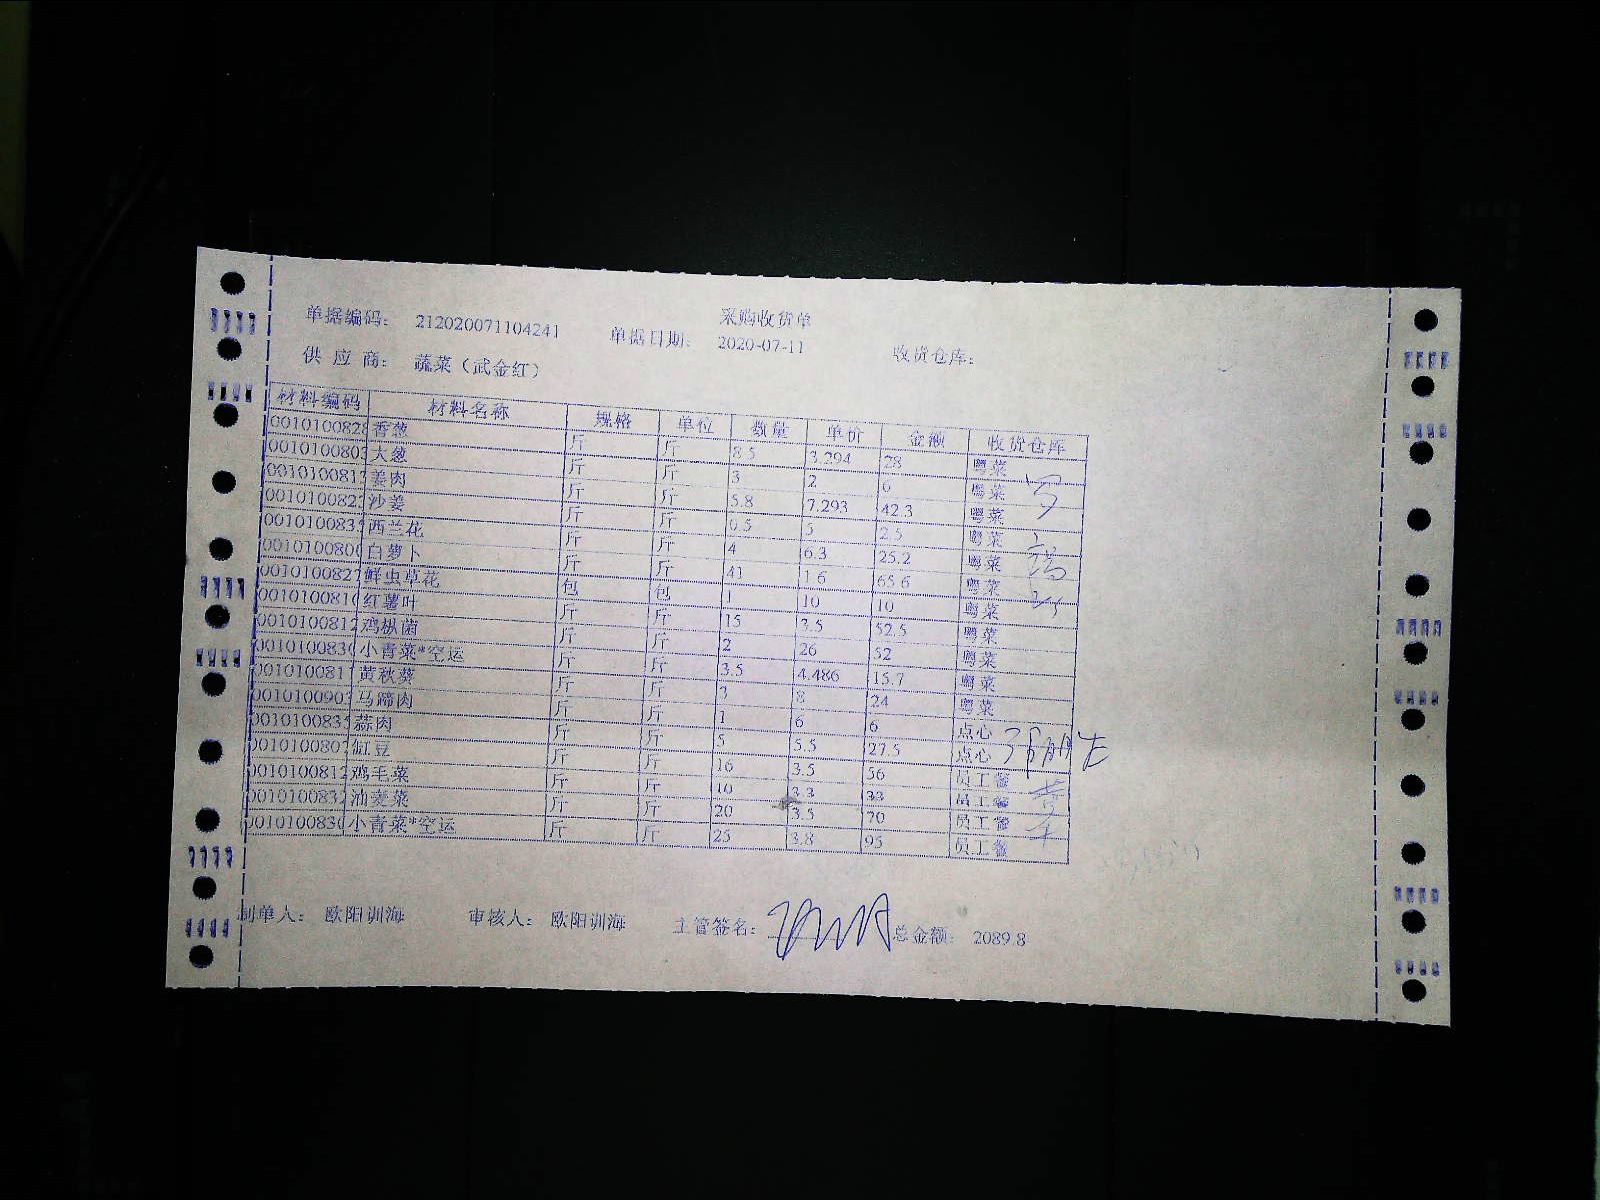 采购收货单
单据编码: 212020071104241 单据日期: 2020-07-11 收货仓库:
供 应 商: 蔬菜（武金红）
材料编码 材料名称 规格 单位 数量 单价 金额 收货仓库
0010100828 香葱 斤 斤 8.5 3.294 28 粤菜
0010100803 大葱 斤 斤 3 2 6 粤菜
0010100813 姜肉 斤 斤 5.8 7.293 42.3 粤菜
0010100822 沙姜 斤 斤 0.5 5 2.5 粤菜
0010100835 西兰花 斤 斤 4 6.3 25.2 粤菜
0010100800 白萝卜 斤 斤 41 1.6 65.6 粤菜
0010100827 鲜虫草花 包 包 1 10 10 粤菜
0010100810 红薯叶 斤 斤 15 3.5 52.5 粤菜
0010100812 鸡枞菌 斤 斤 2 26 52 粤菜
0010100830 小青菜*空运 斤 斤 3.5 4.486 15.7 粤菜
0010100811 黄秋葵 斤 斤 3 8 24 粤菜
0010100903 马蹄肉 斤 斤 1 6 6 点心
0010100835 蒜肉 斤 斤 5 5.5 27.5 点心
0010100807 缸豆 斤 斤 16 3.5 56 员工餐
0010100812 鸡毛菜 斤 斤 10 3.3 33 员工餐
0010100832 油麦菜 斤 斤 20 3.5 70 员工餐
0010100830 小青菜*空运 斤 斤 25 3.8 95 员工餐
制单人: 欧阳训海 审核人: 欧阳训海 主管签名: 总金额: 2089.8